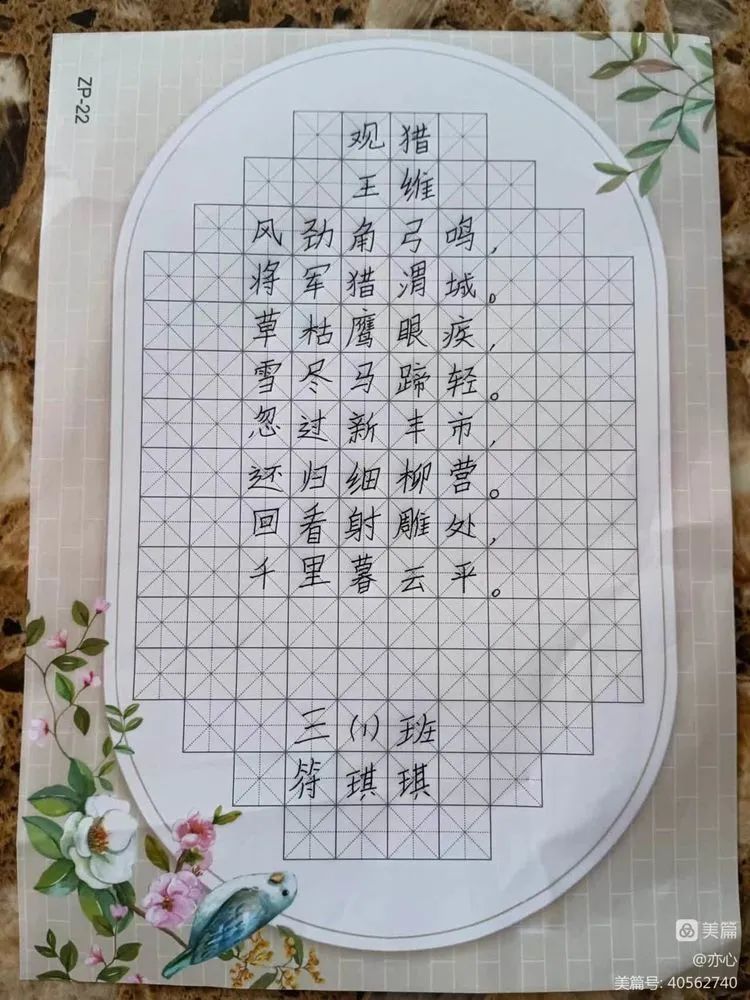 ZP-22
观猎
王维
风劲角弓鸣,
将军猎渭城。
草枯鹰眼疾,
雪尽马蹄轻。
忽过新丰市,
还归细柳营。
回看射雕处,
千里暮云平。
三(1)班
符琪琪
美篇
@亦心
美篇号: 40562740